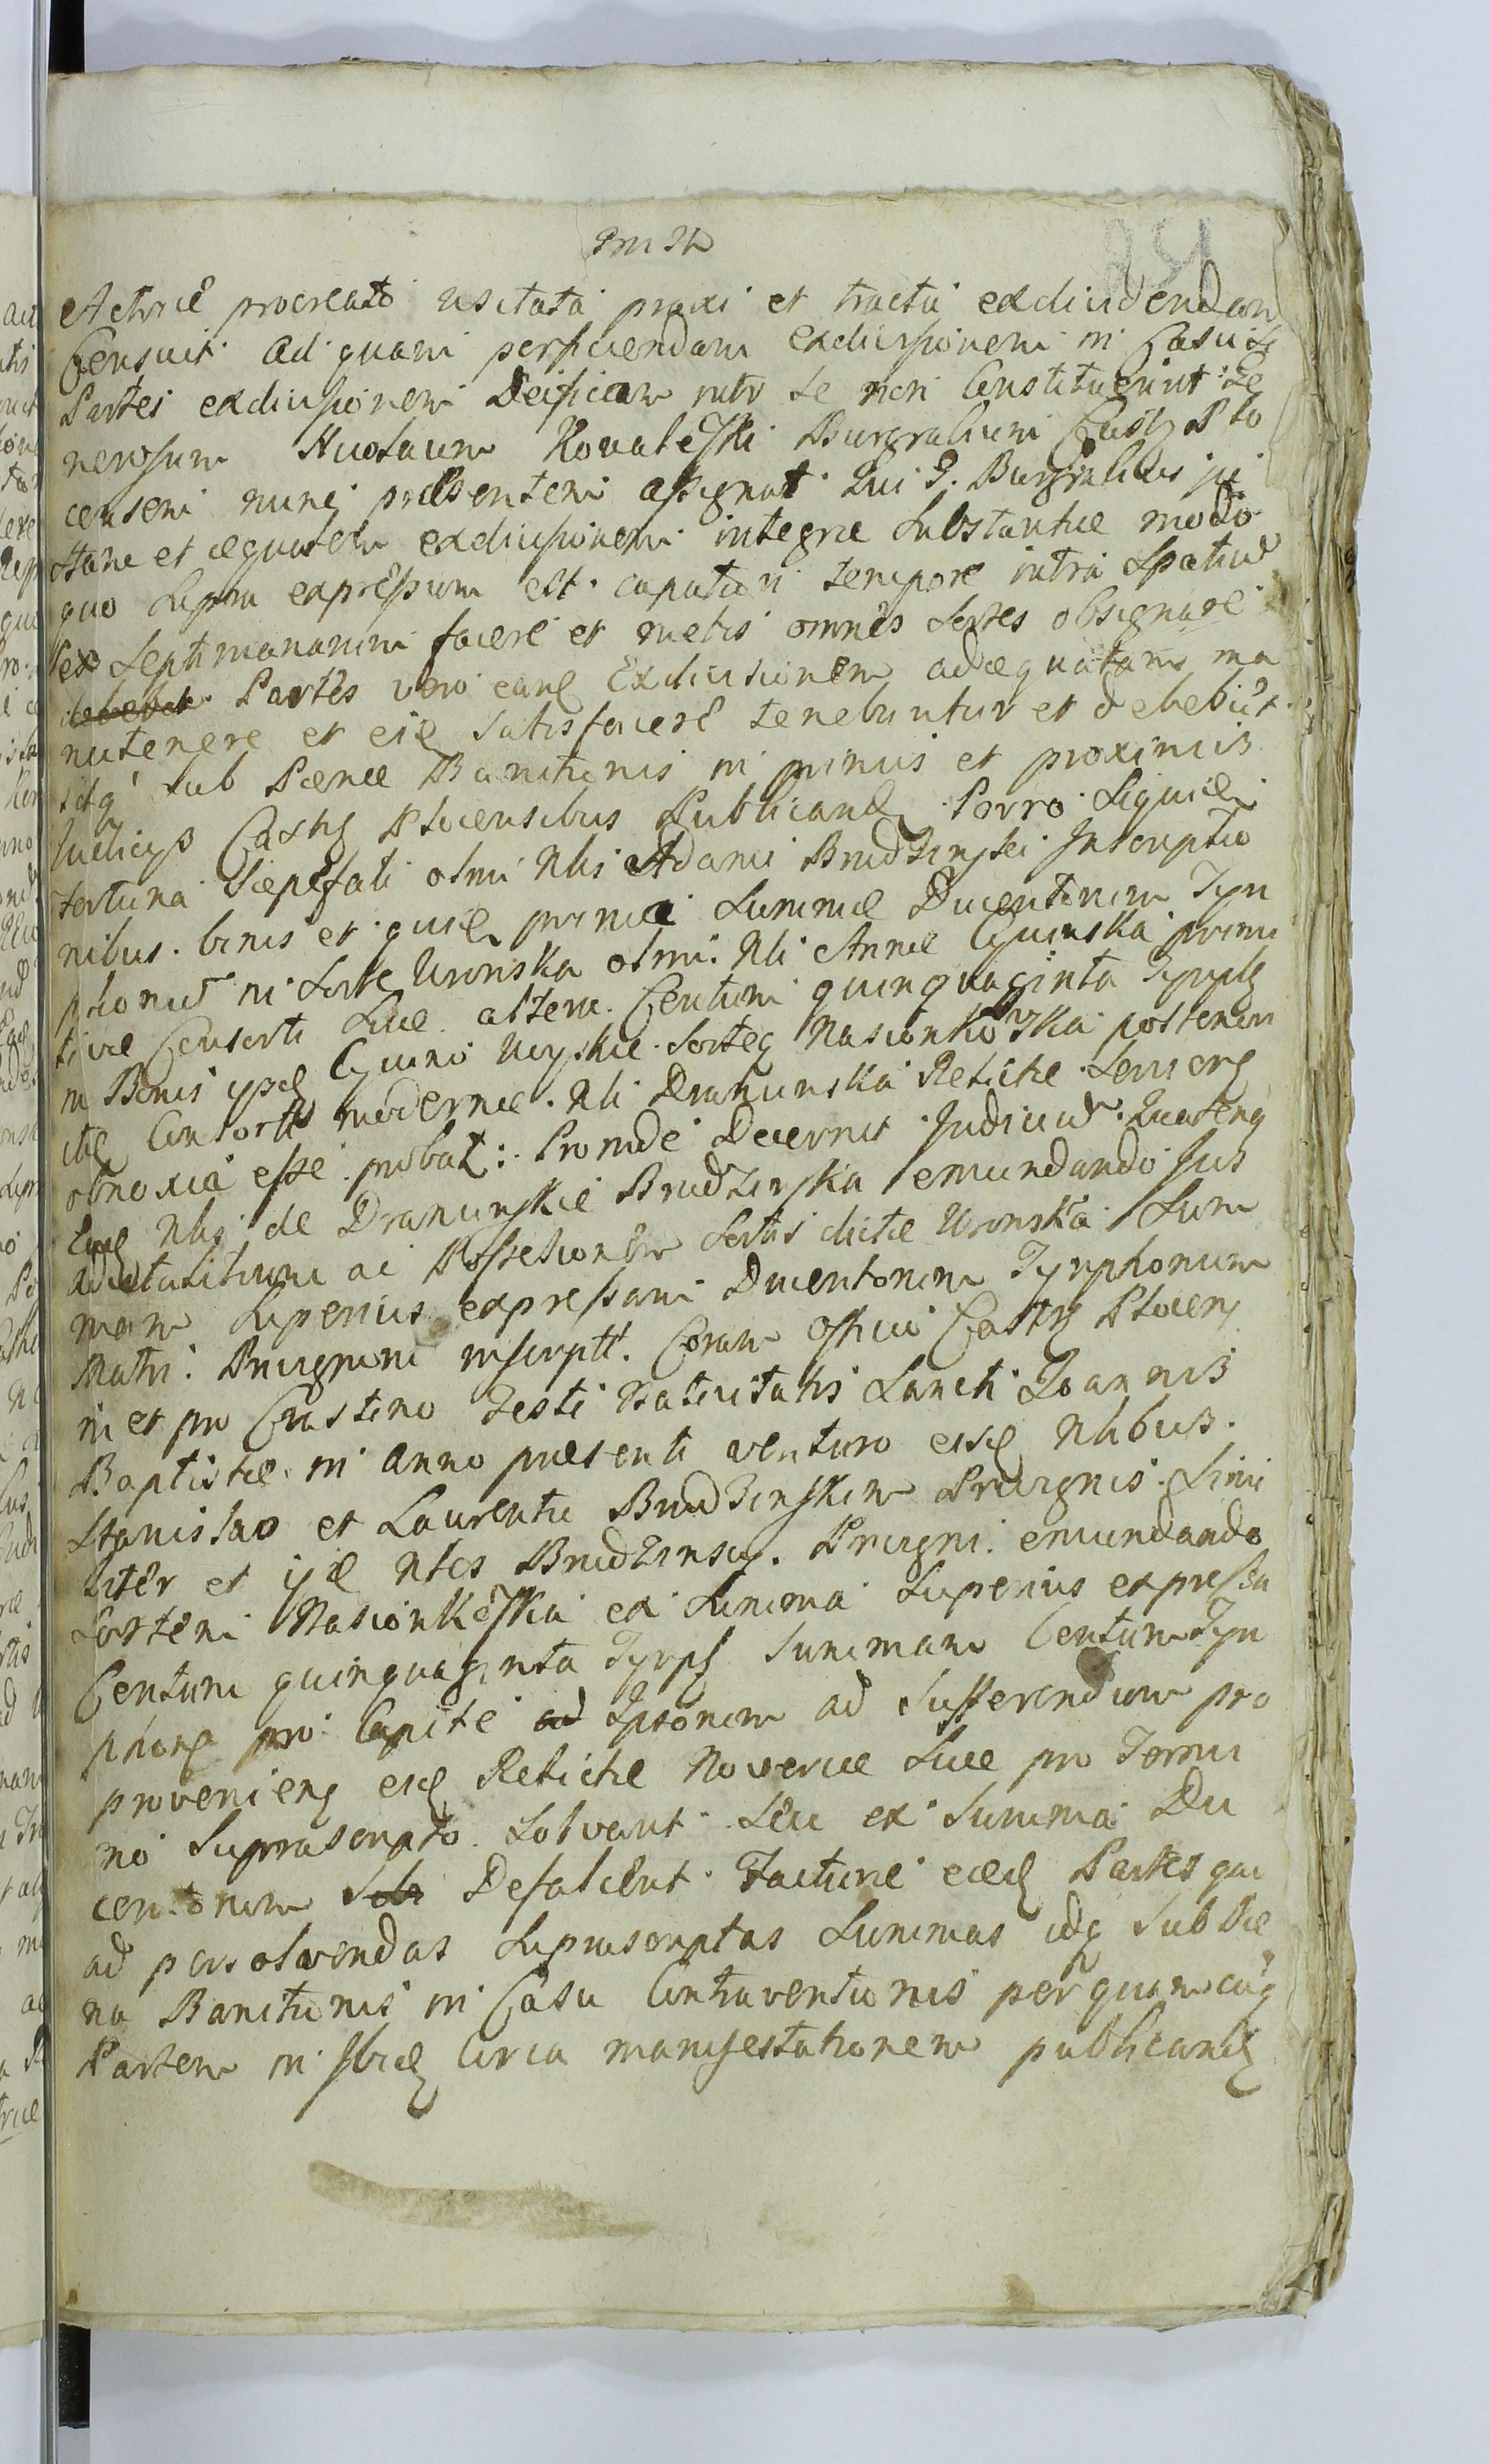 251
Actricé procreato usitatâ praxi et tractu exdiuidendam
Censuit ad quam perficiendam exdiuisionem in Casu si
Partes exdiuisionem inter se non Constituerint Ge
nerosum Kowaleski Burgrabium Castr Plo
censem nunc praesentem assignat Qui G. Burgrabius ju
stam et aequalem exdiuisionem integrae Substantiae modo
quo Supra expressum est tempore intra Spatiu
sex Septimanarum facere et metis omnes Sortes obsignare
debebit Partes vero eand Exdiuisionem adaequatam ma
nutenere et eid Satisfacere tenebuntur et debebut
idq sub Paena Banitionis in primis et proximis
Iudicys Castr Plocensibus Publicand Porro Siquid
Fortuna Saepefati olim Nbis Adami Brudzinski Inscriptio
nibus binis et quid prima Summae Ducentorum Tyn
phonu in Sorte Wronska olim Nbi Annae primi
tivae Consorti Suae altera Centum quinquaginta Tynph
in Bonis Sorteq Nasionkowska posteriori
Consorti modernae Nbi Draminska Relictae
obnoxia esse probat: Proinde Decernit Judiciu Quateng
Nbis de Draminskie Brudzinska emundando Jus
ac Possessionem Sortis dictae Wronska Sum
mam Superius expressam Ducentorum Tynphonum
Matri Priuignorum inscript Coram Officio Castr Plocen
in et pro Crastino Festi Natiuitatis Sancti Joannis
Baptistae in anno praesenti venturo eisd Nbibus
Stanislao et Laurentio Brudzinskim Priuignis Simi
liter et ijd Nbes Brudzinscy Priuigni emundando
Sortem Nasionkoska ex Summa Superius expressa
Centum quinquaginta Tynph Summam Centum Tyn
phong pro Capite ad Ipsorum ad Sufferendum pro
provenieng eid Relictae Novercae Suae pro Termi
no Suprascripto Solvant Seu ex Summa Du
centorum Defalcent Facturae eaed Partes qui
ad persolvendas Suprascriptas Summas idq Sub Pae
na Banitionis in Casu Contraventionis per quamcuq
Partem in Ibid Circa manifestationem publicand